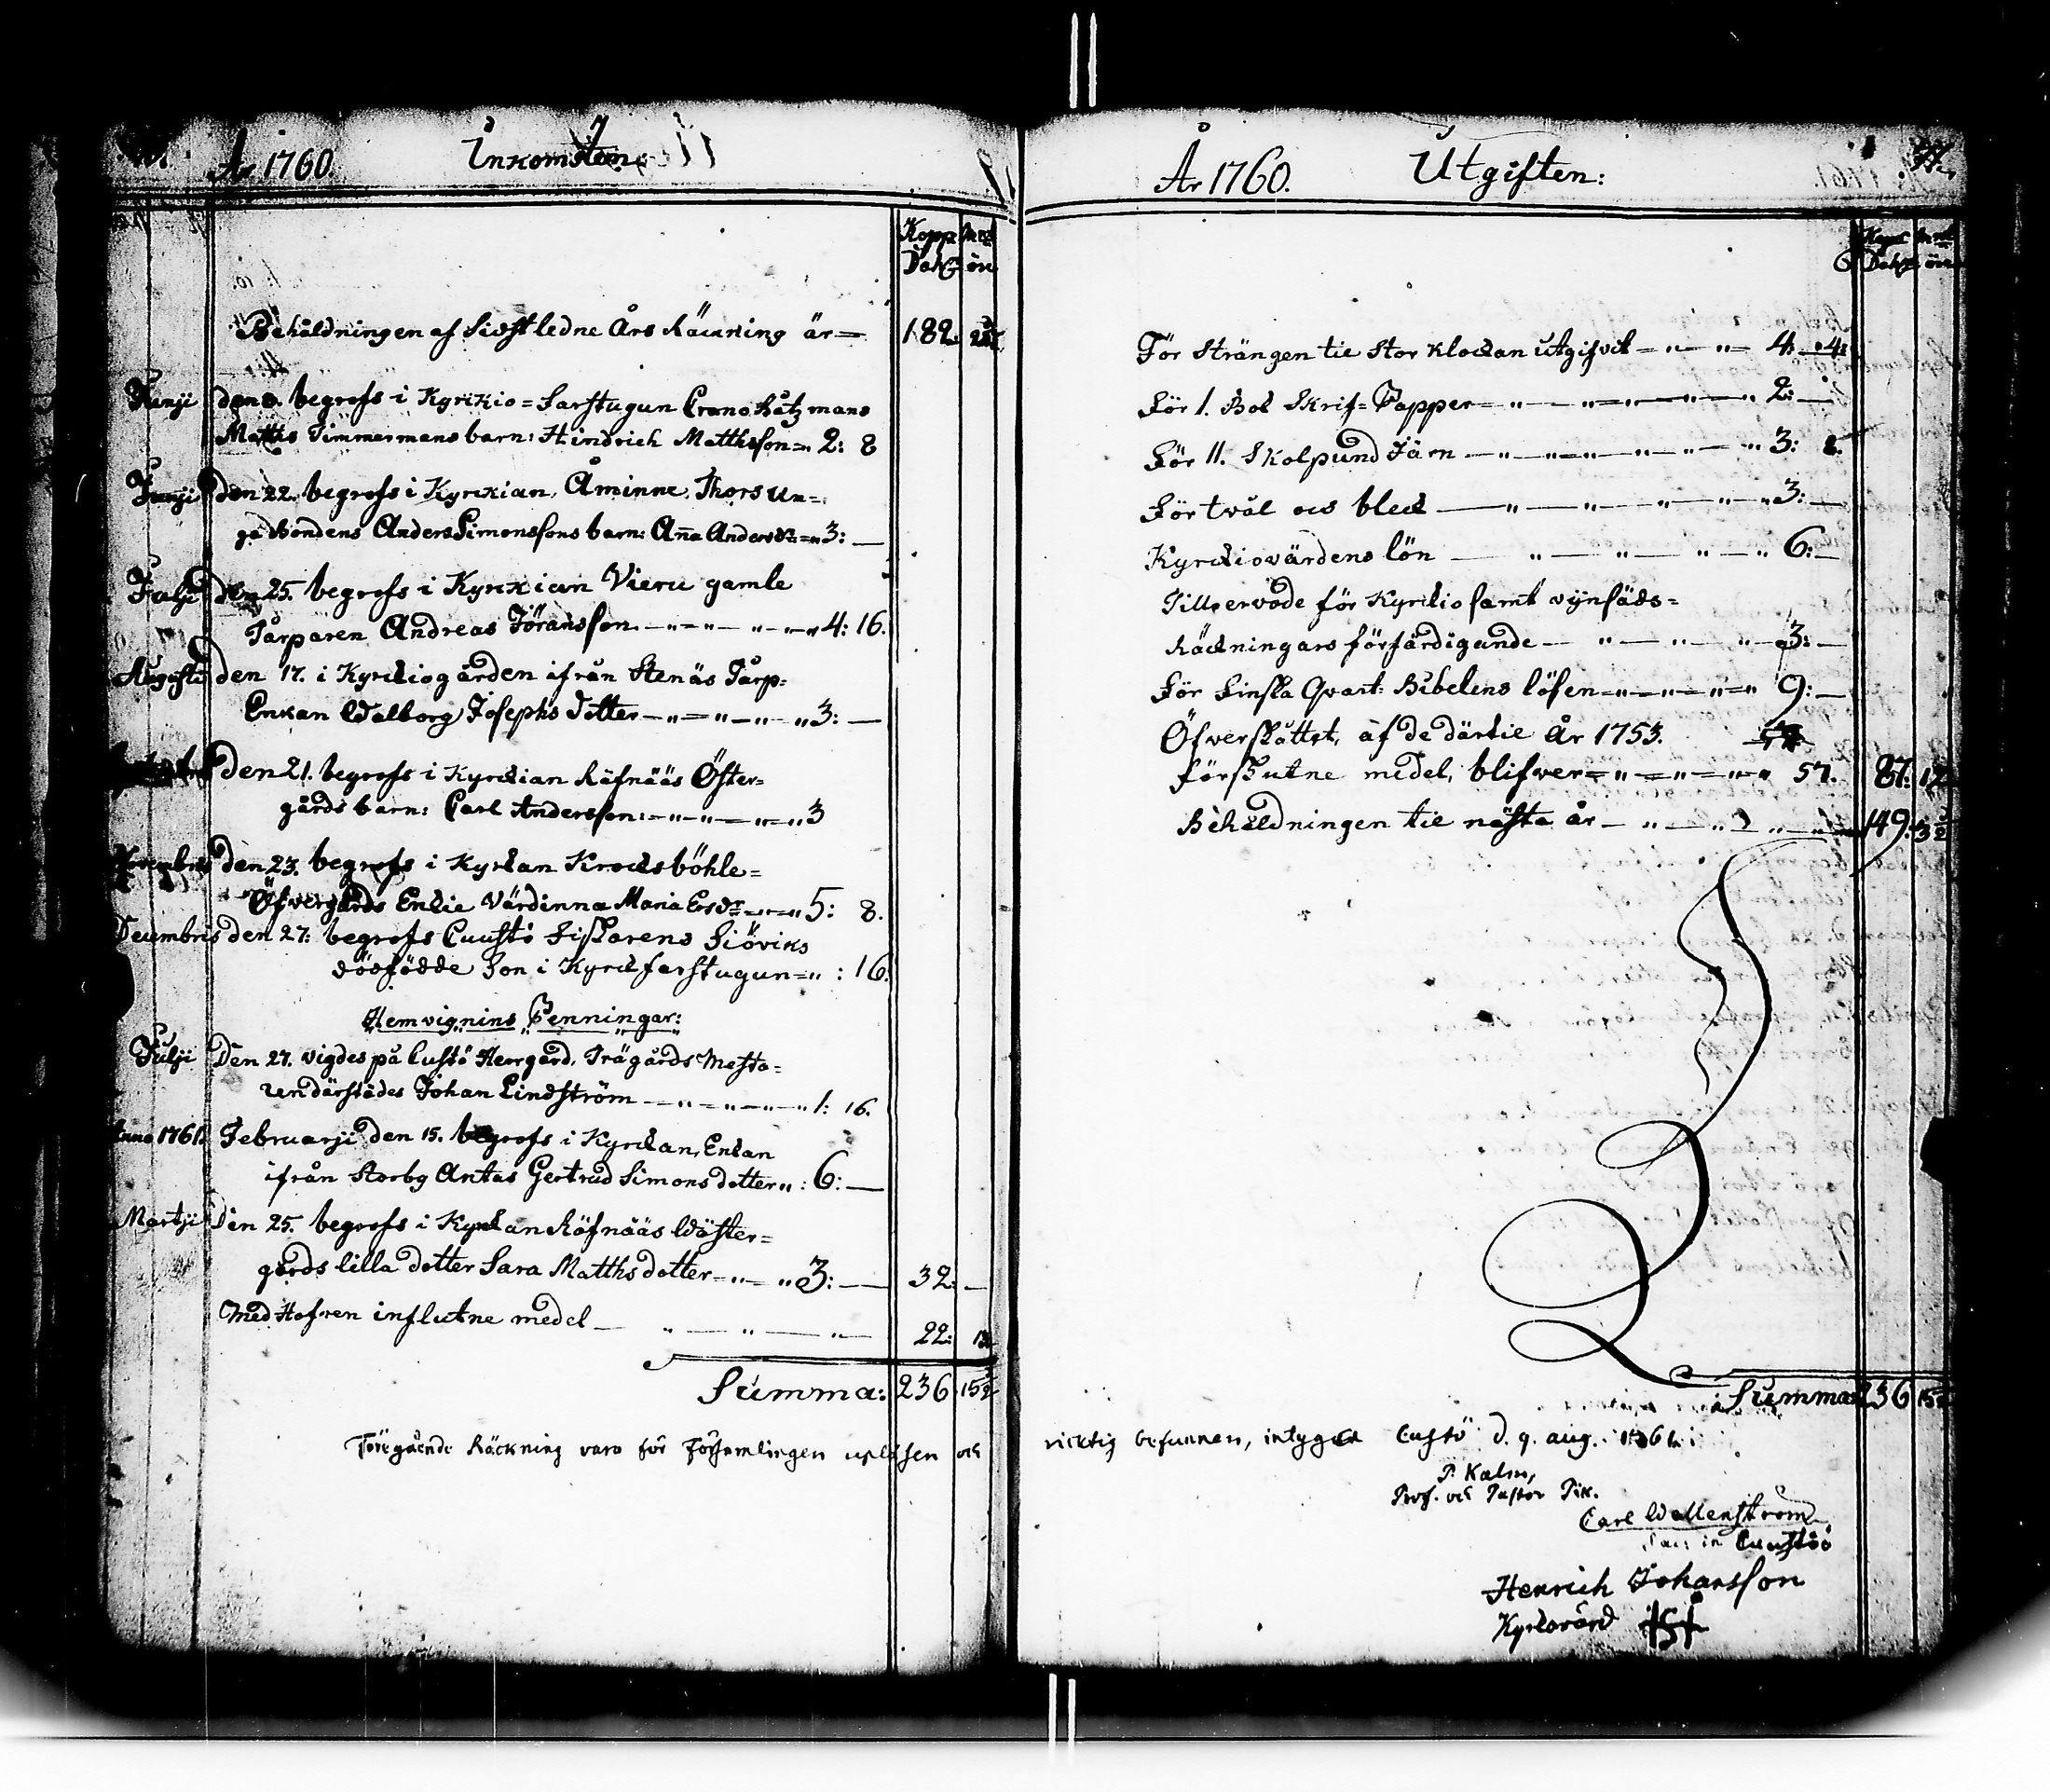 År 1760. Inkomsten:
Kopp Mt
Dahl öre
Behåldningen af Sidstledne Års Räckning är = 182.
Junji den 8. begrofs i Kyrckio=farstugun Crono Båtzmans
Matths Timmermans barn: Hindrich Matthsson = 2: 8
Junji den 22. begrofs i Kyrckian, Åminne, Thors un=
ga Bondens Anders Simonssons barn: Aña Andersdr = 3: —
Julji den 25. begrofs i Kyrckian Vieru gamle
Tårparen Andreas Jöransson. — 4: 16.
Augusti den 17. i Kyrckiogården ifrån Stenäs Tårp=
Enkan Walborg Josephs dotter — 3: —
den 21. begrofs i Kyrckian Räfnääs Öster=
gårds barn: Carl Andersson: — 3
Novembris den 23. begrofs i Kyrckan Krocksböhle=
Öfvergårds Enckie Värdinna Maria Ersdr — 5: 8.
Decembris den 27: begrofs Cuustö Fiskarens Siöviks
dödfödde Son i Kyrckfarstugun = : 16.
Hemvignins Penningar:
Julji Den 27. vigdes på Custö Herrgård, Trägårds Mästa=
ren därstädes Johan Lindström — 1: 16.
Anno 1761. Februarji den 15. begrofs i Kyrckan, Enckan
ifrån Storby Antas Gertrud Simons dotter : 6: —
Martji Den 25. begrofs i Kyrckan Räfnääs Wäster=
gårds lilla dotter Sara Matths dotter — 3: — 32: —
Med Hofven influtne medel — 22:
Summa: 236 15½
Föregående Räckning vara för Församlingen upläsen och
År 1760. Utgiften:
Kopp Mt
Dahl öre
För Strängen til Stor Klockan utgifvit — 4: 4:
För 1. Bok Skrif=Papper = 2: —
För 11. Skolpund Järn — 3: 8.
För tvål ock bleck — 3: —
Kyrckiovärdens lön — 6: —
Till ervode för Kyrckio samt vijnsäds=
Räckningars förfärdigande — 3: —
För Finska Qvart: Bibelens lösen — 9: —
Öfverskåttet, af de därtil År 1753.
förskutne medel, blifver = 57. 87: 12
Behåldningen til nästa år — 149: 3½
Summa 236 15½
ricktig befunnen, intygar Custö d. 9. aug. 1761.
P. Kalm,
Prof. och Pastor Pik.
Carl Wallenström
Sac: in Cuustöö
Henrich Johansson
Kyrkovärd